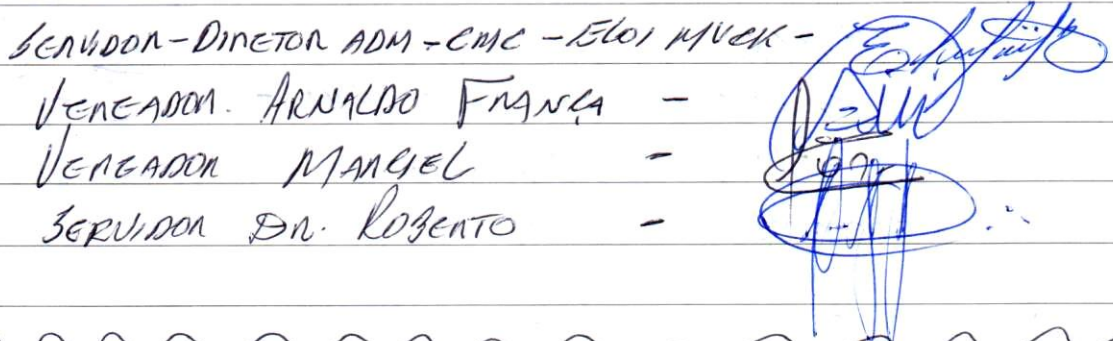 SERVIDOR-DIRETOR ADM-CMC-ELOI MUCK-
VEREADOR. ARNALDO FRANÇA -
VEREADOR MARCIEL -
SERVIDOR DR. ROBERTO -